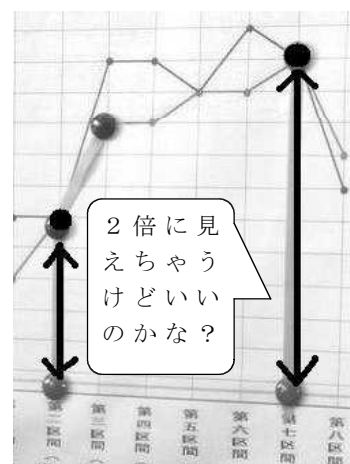 ２倍に見
えちゃう
けどいい
のかな？
第二区間（
第三区間（
第四区間
第五区間
第六区間
第七区間
第八区間